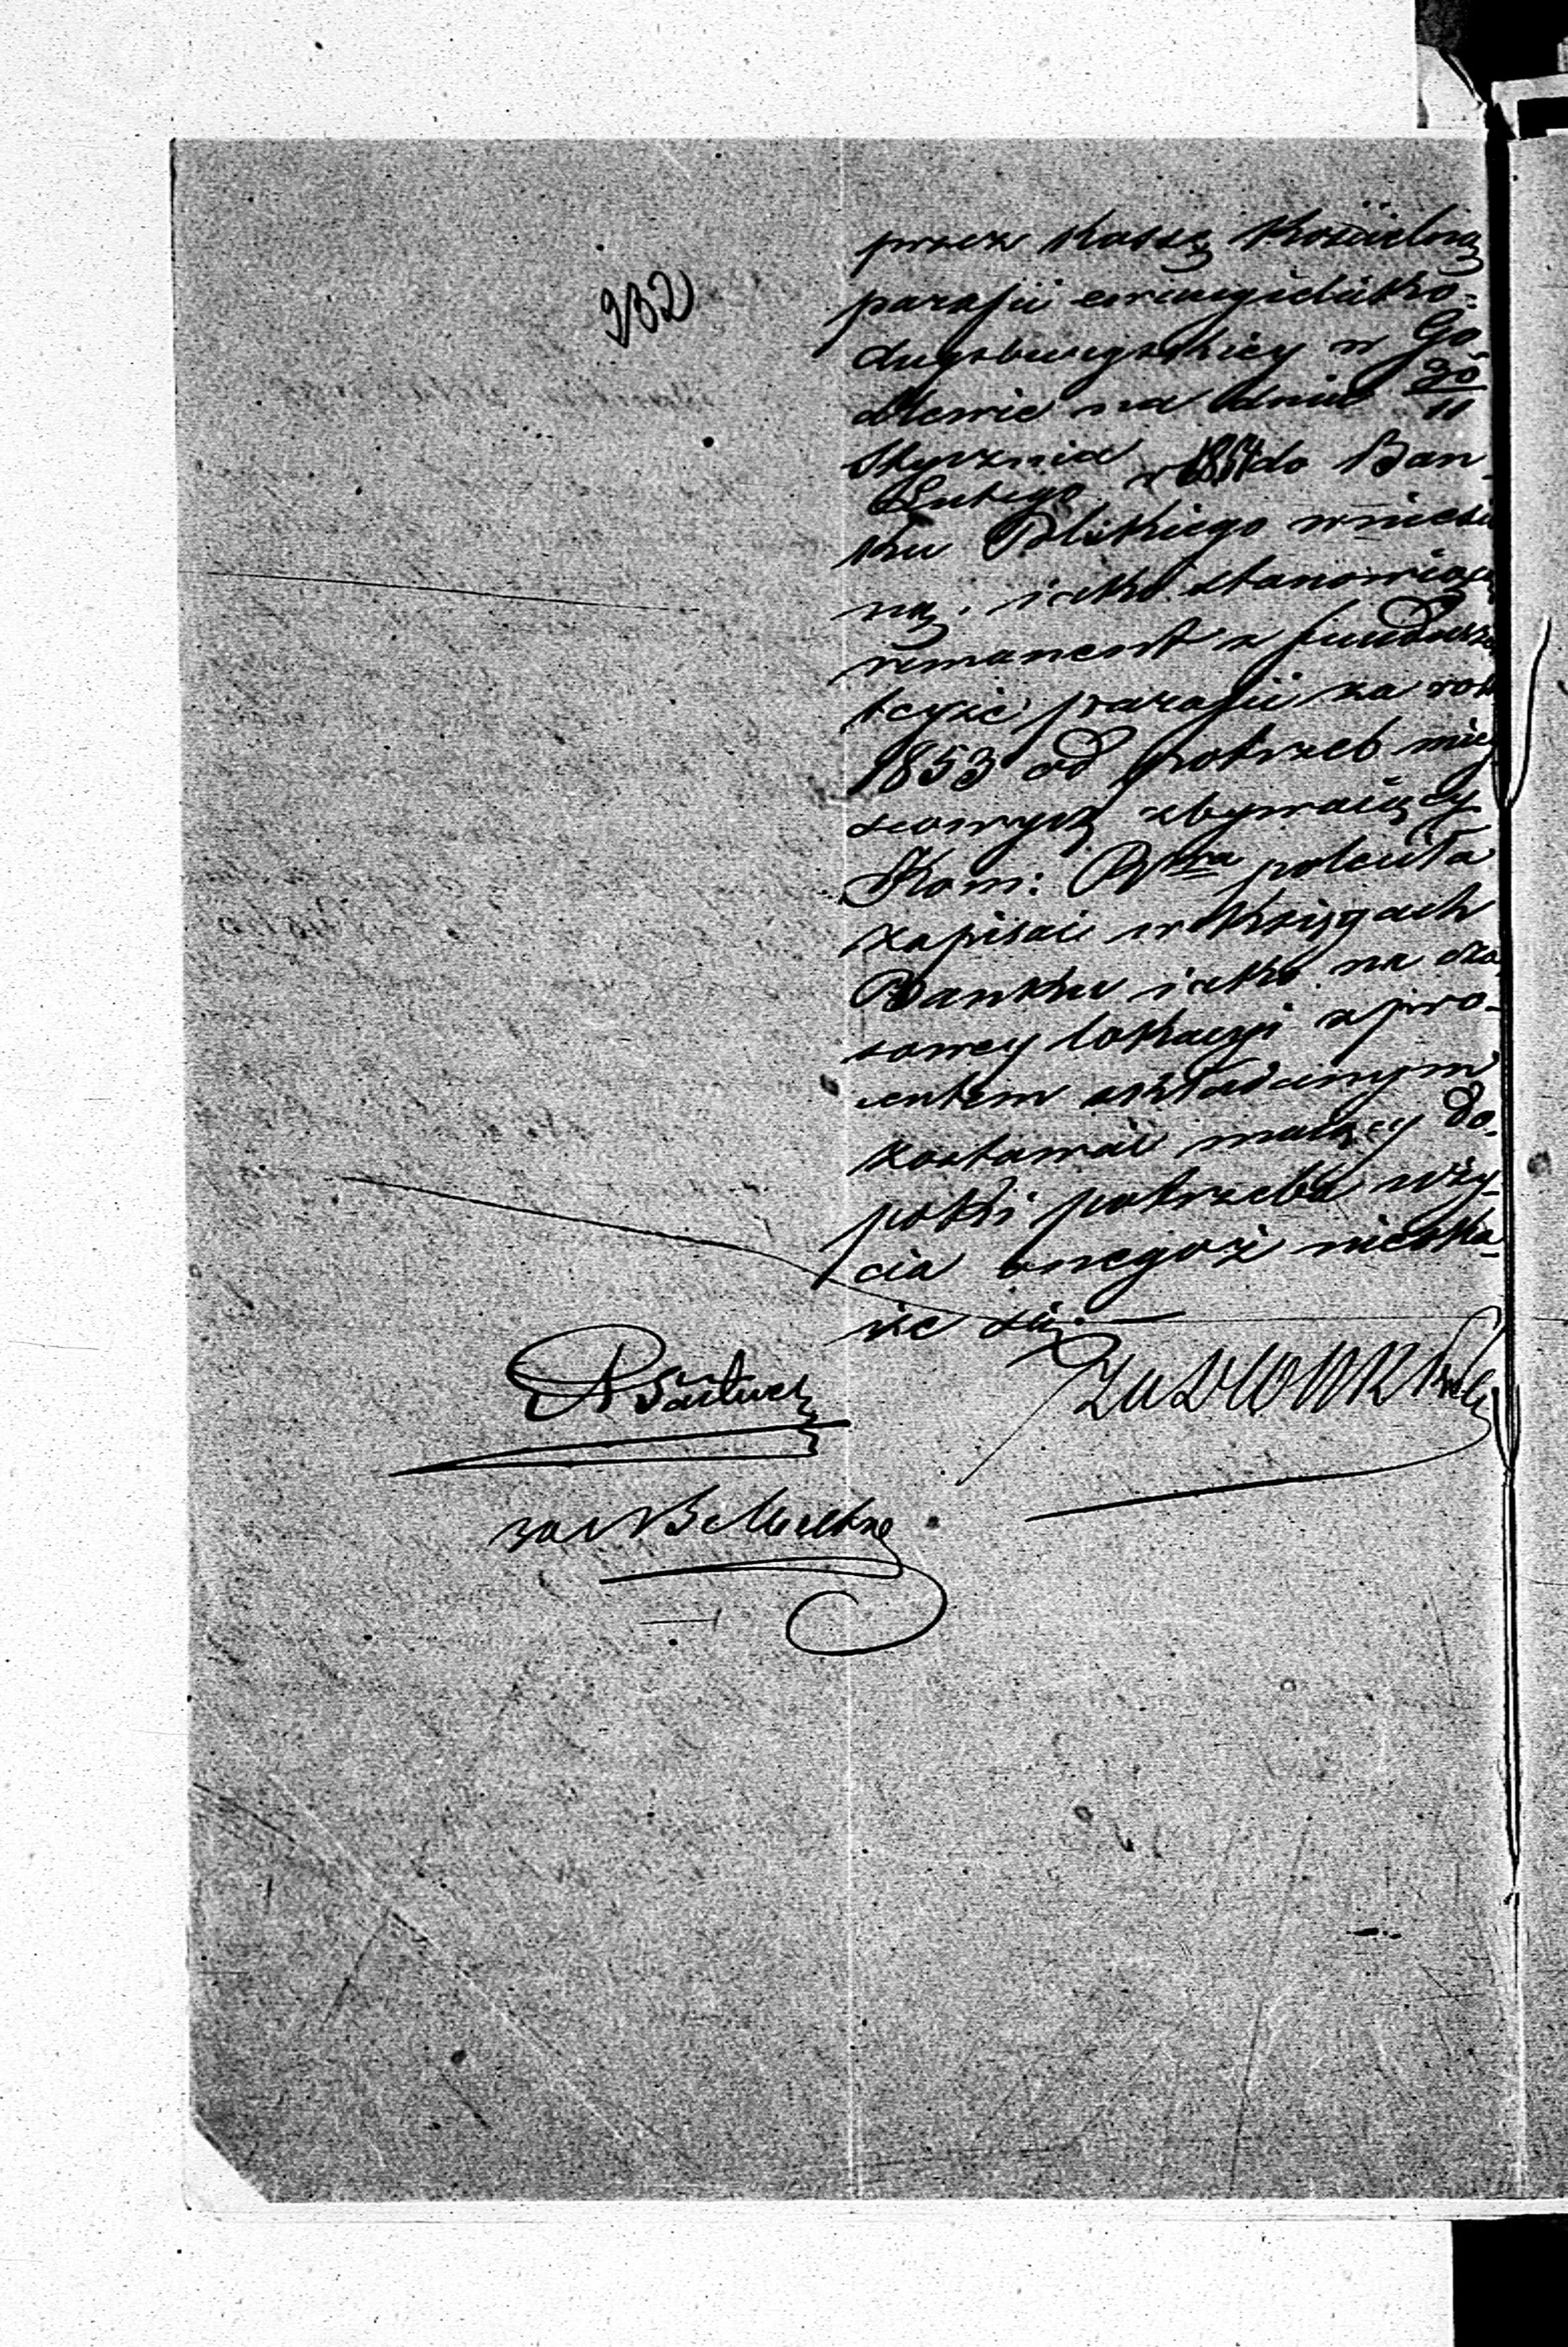 932
przez Kassę Kościelną
parafii ewangielicko-
augsburgskiey w Go-
dlewie na dniu 30/11
Stycznia
Lutego r 1854 do Ban-
ku Polskiego wniesio
ną, iako stanowiącą
remanent z funduszu
teyże parafii za rok
1853 od potrzeb miey
scowych zbywaiący
Kom: Rwa poleciła
zapisać w księgach
Banku iako na cza
sowey lokacyi z pro-
centem składanym
zostawać maiący do-
poki potrzeba uży-
cia onegoż nieoka-
że się.